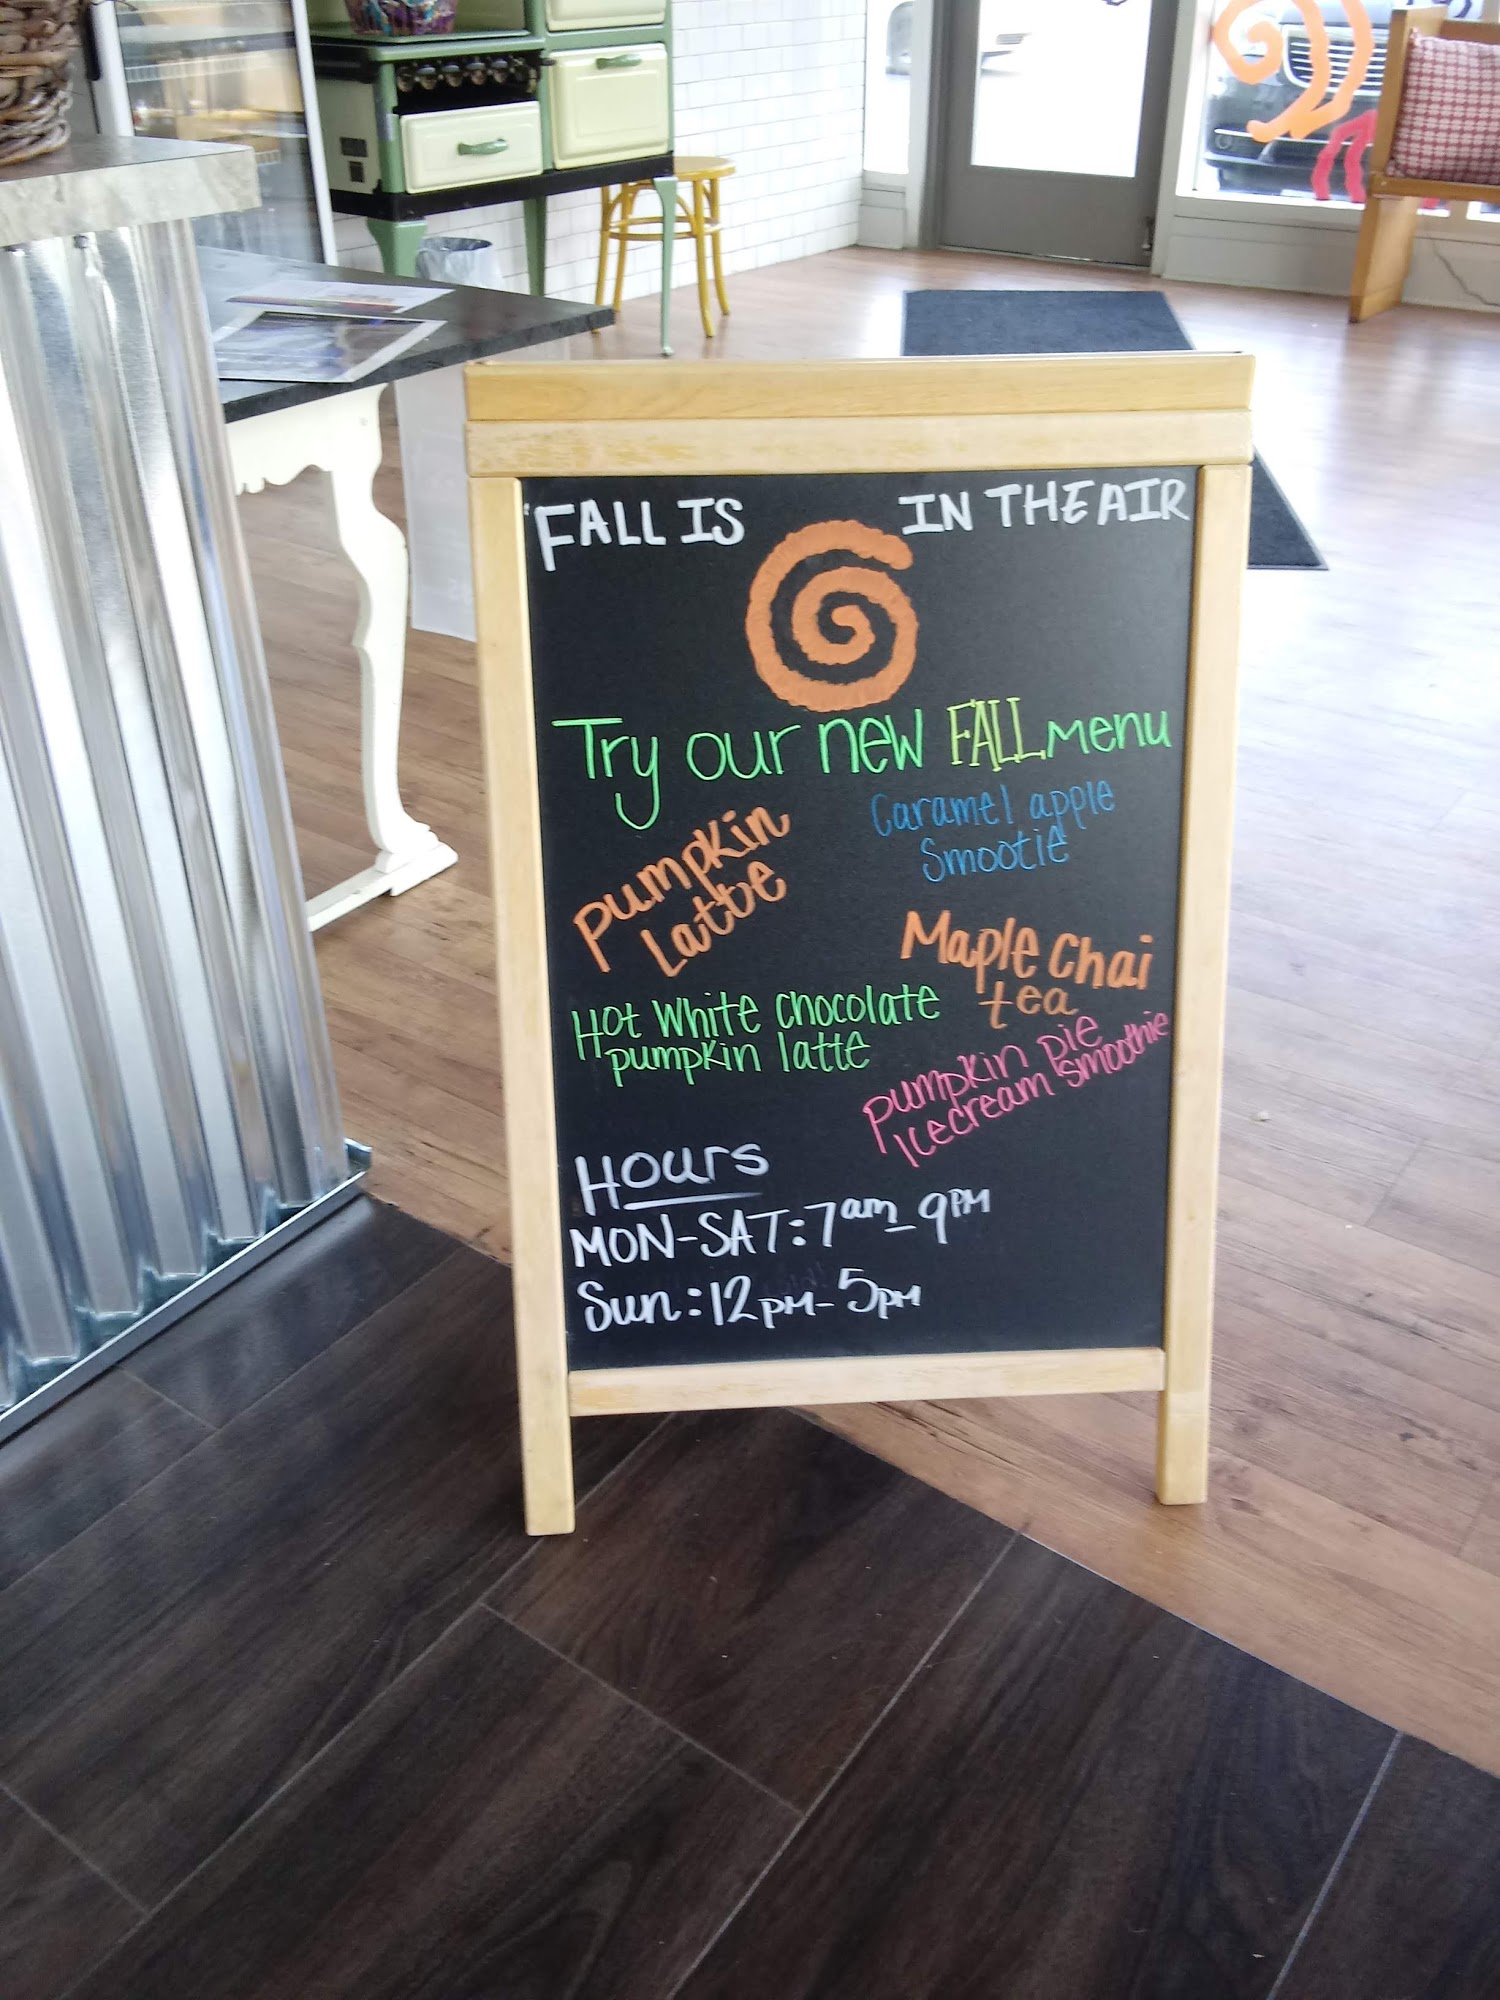 FALL IS IN THE AIR
Try our new FALL menu
Pumpkin
Latte
Caramel apple
Smootie
Maple Chai
tea
Hot White chocolate
pumpkin latte
pumpkin pie
Icecream smoothie
Hours
MON-SAT: 7am-9PM
Sun: 12PM-5PM